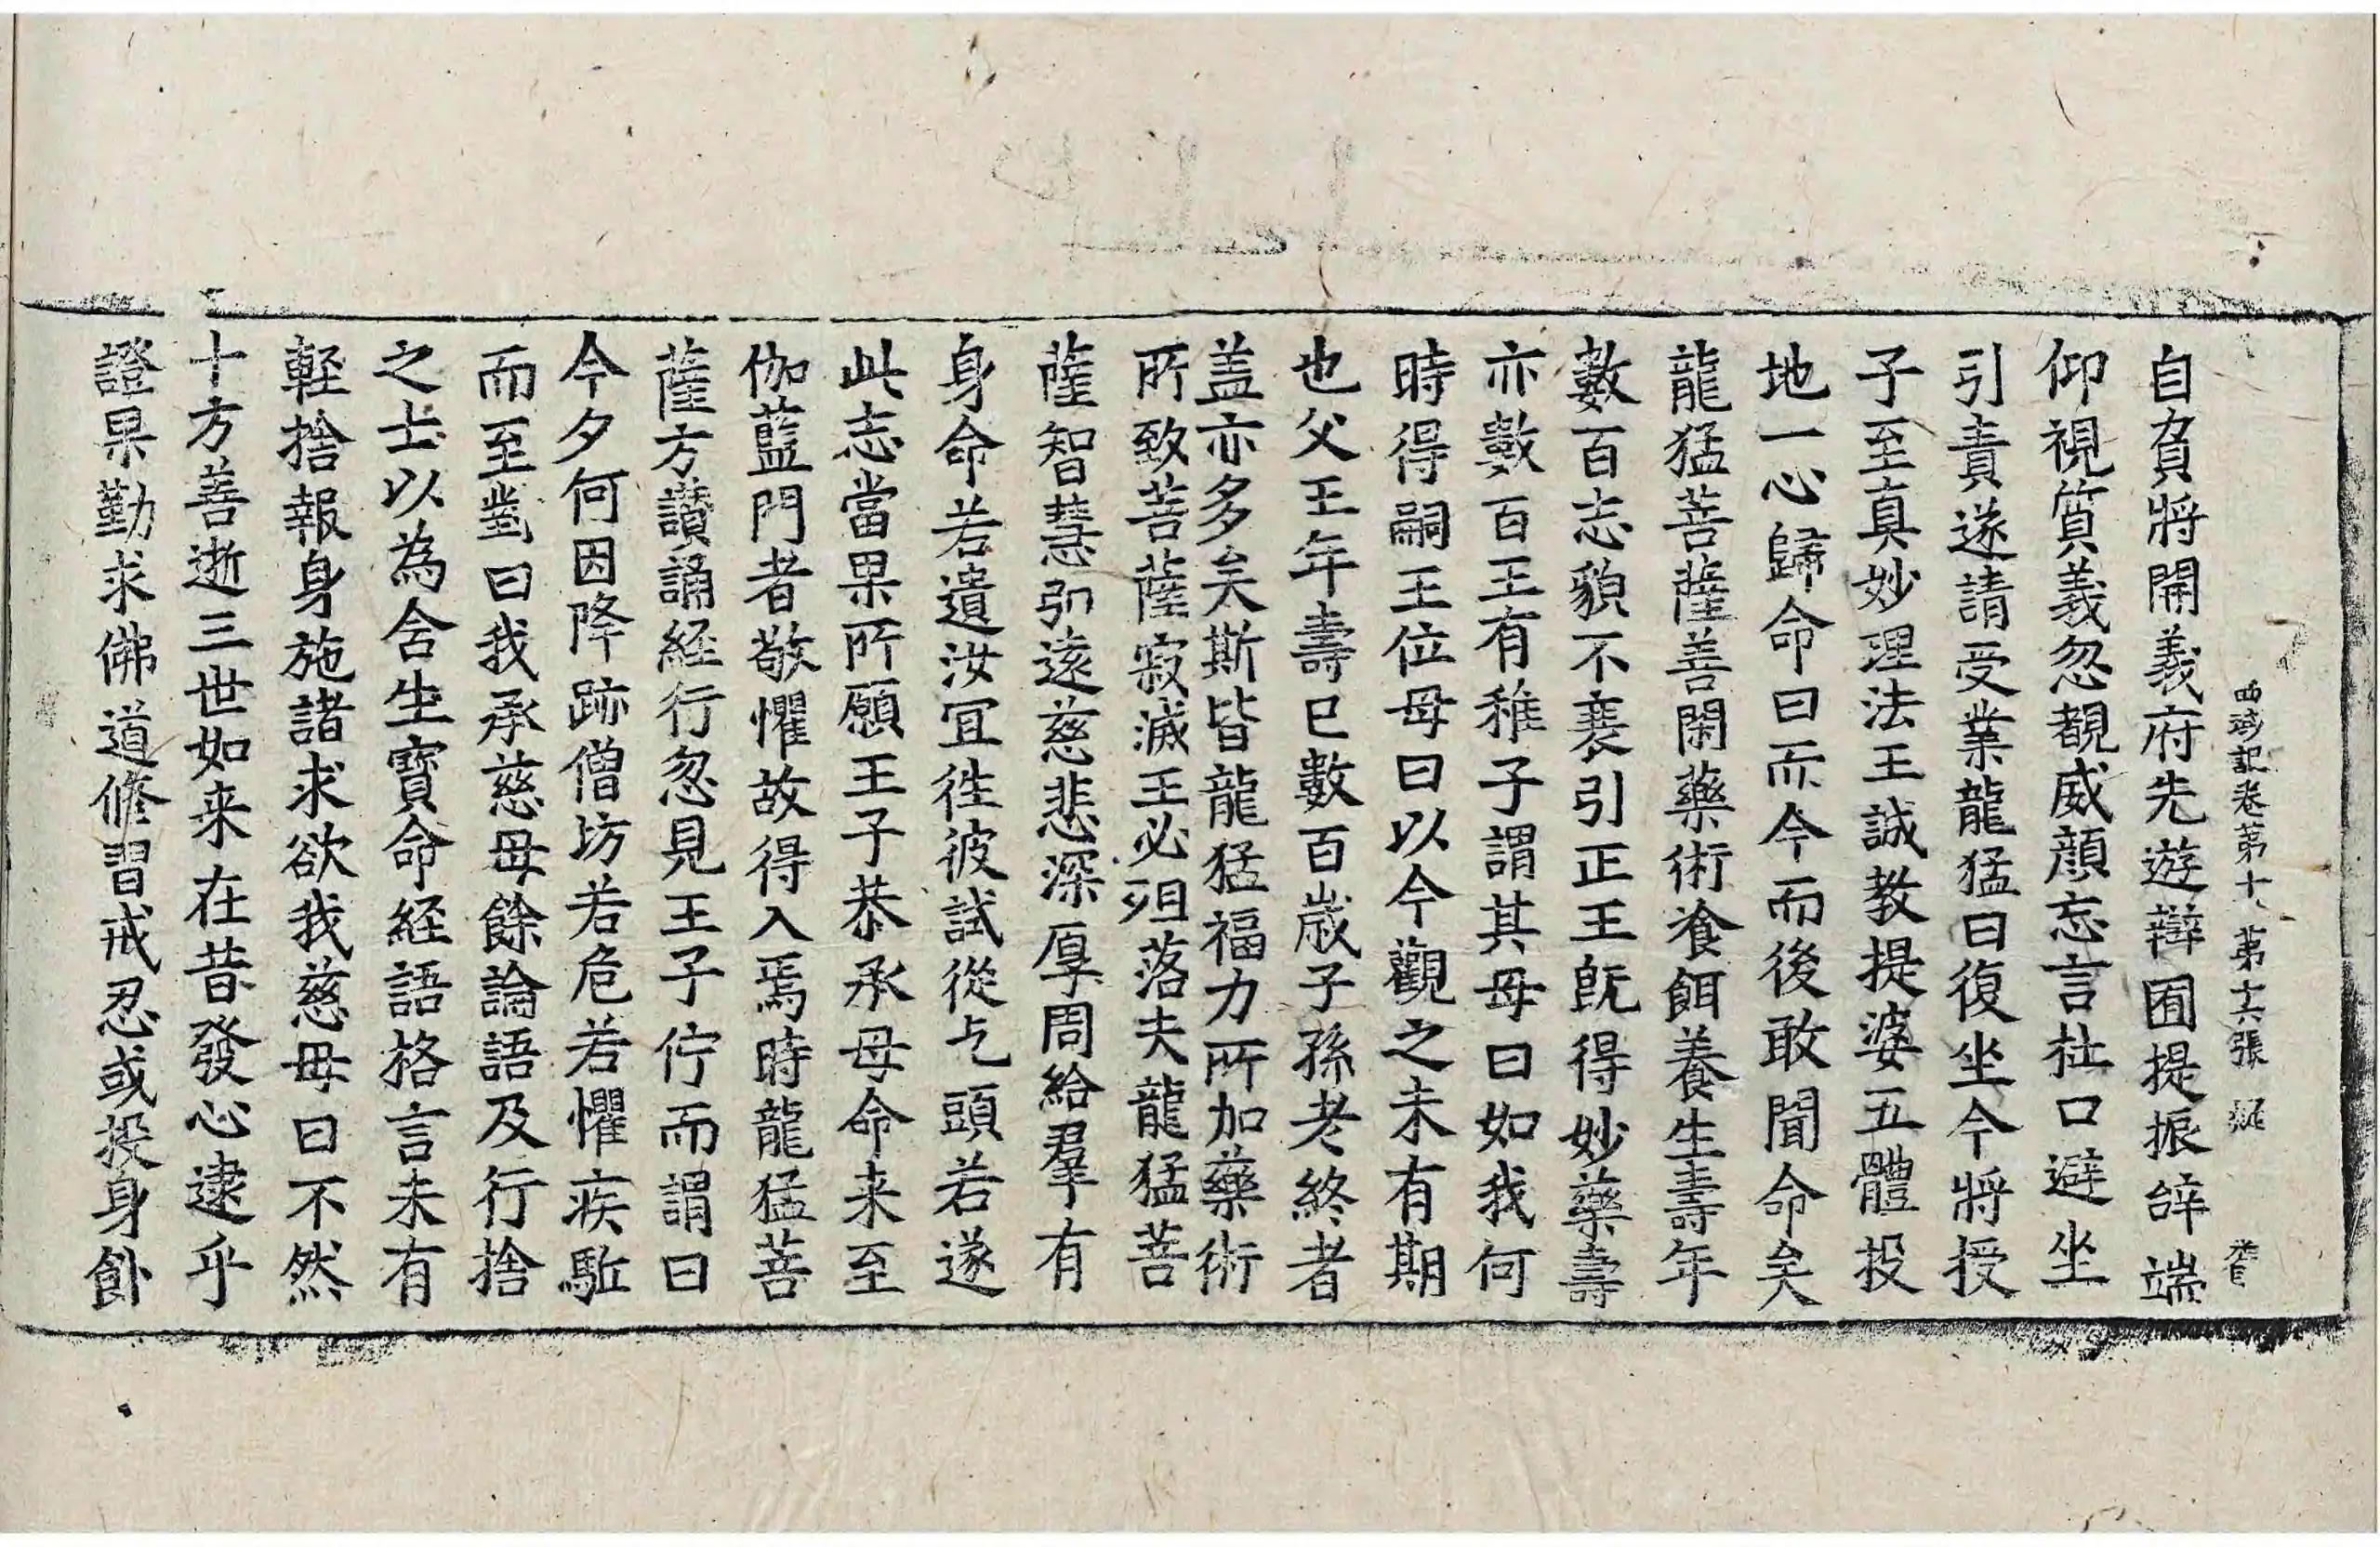 西域記卷第十 第十六張 疑
自負將開義府先遊辯囿提振辭端
仰視質義忽覩威顔忘言杜口避坐
引責遂請受業龍猛曰復坐今將授
子至真妙理法王誠教提婆五體投
地一心歸命曰而今而後敢聞命矣
龍猛菩薩善閑藥術飡餌養生壽年
數百志貌不衰引正王旣得妙藥壽
亦數百王有稚子謂其母曰如我何
時得嗣王位母曰以今觀之未有期
也父王年壽已數百歲子孫老終者
盖亦多矣斯皆龍猛福力所加藥術
所致菩薩寂滅王必殂落夫龍猛菩
薩智慧弘遠慈悲深厚周給羣有
身命若遺汝宜徃彼試從乞頭若遂
此志當果所願王子恭承母命来至
伽藍門者敬懼故得入焉時龍猛菩
薩方讃誦経行忽見王子佇而謂曰
今夕何因降跡僧坊若危若懼疾駈
而至對曰我承慈母餘論語及行捨
之士以為含生寶命経語格言未有
輕捨報身施諸求欲我慈母曰不然
十方善逝三世如来在昔發心逮乎
證果勤求佛道修習戒忍或投身飼